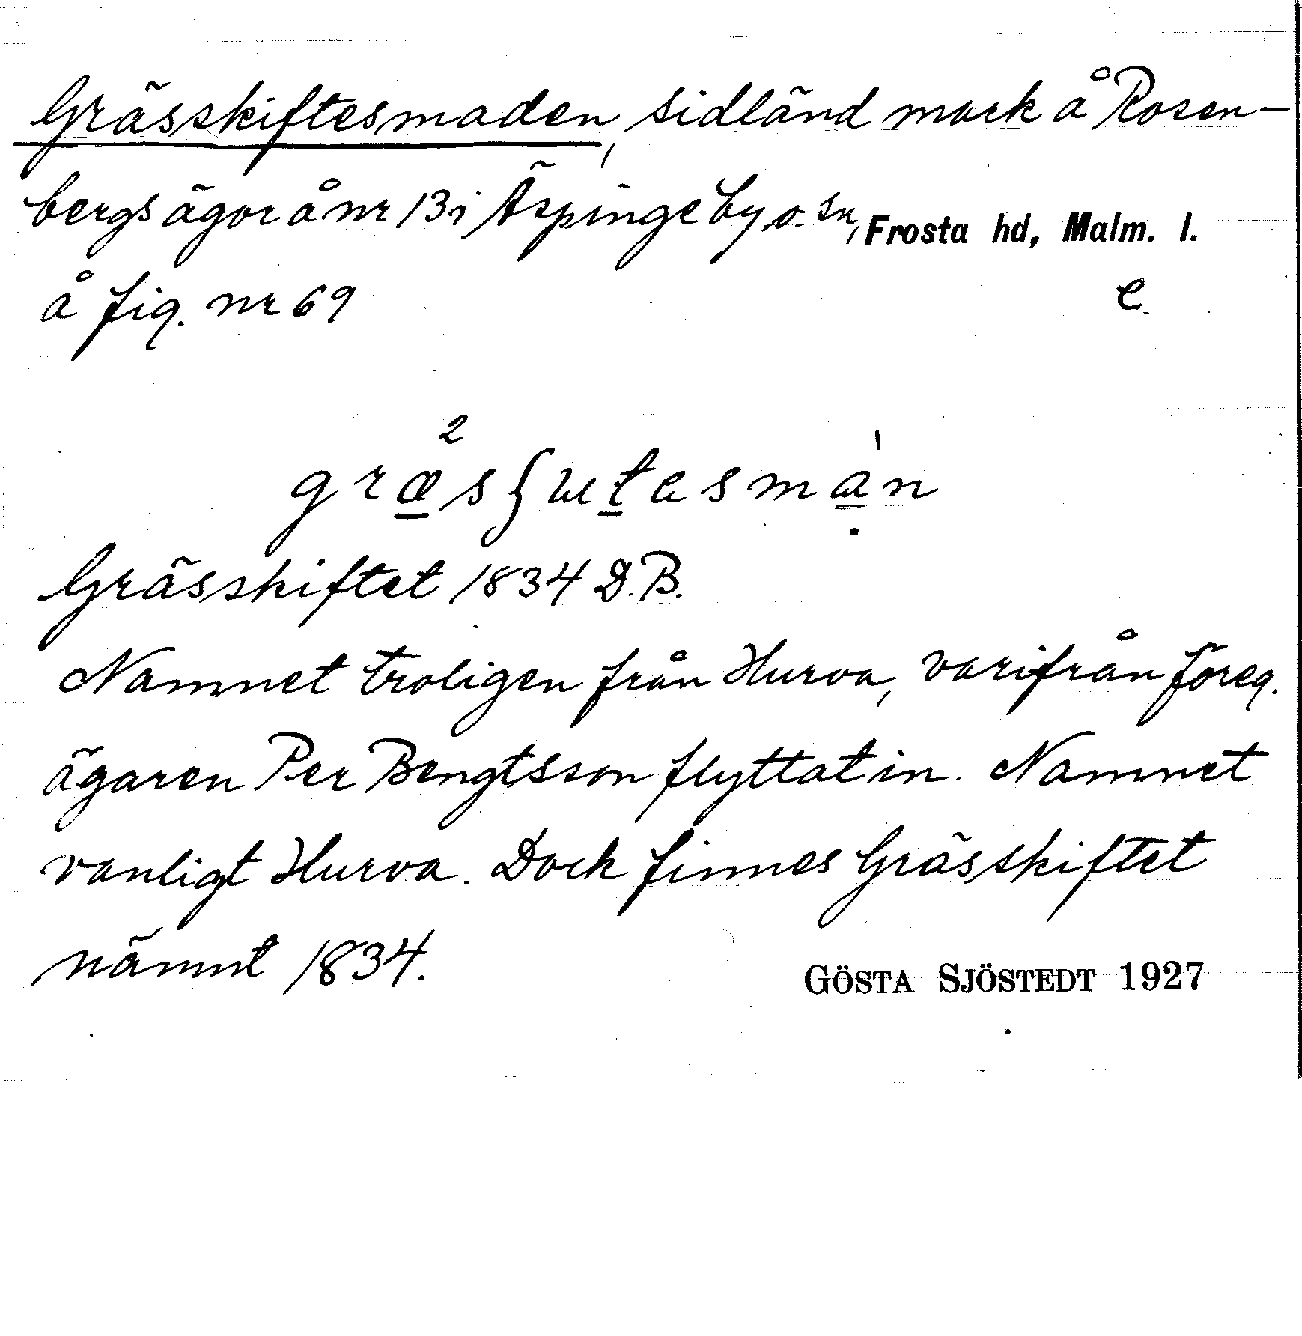 Grässkiftesmaden, sidländ mark å Rosen-
bergs ägor å nr 13 i Äspinge by o. sn, Frosta hd, Malm. l.
å fig. nr 69 e.
Grässkiftet 1834 D.B.
Namnet troligen från Hurva, varifrån föreg.
ägaren Per Bengtsson flyttat in. Namnet
vanligt Hurva. Dock finnes Grässkiftet
nämnt 1834.
GÖSTA SJÖSTEDT 1927